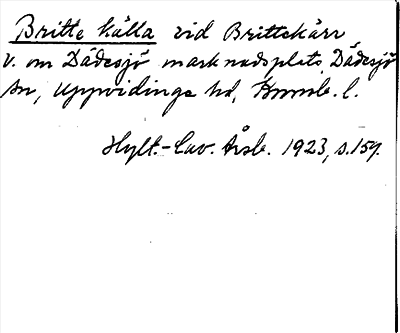 Britte källa vid Brittekärr
v. om Dädesjö marknadsplats, Dädesjö
sn, Uppvidinge hd, Kronob. l.
Hylt.-Cav. Årsb. 1923, s. 159.